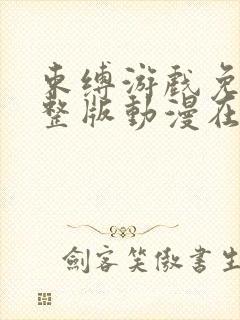 束缚游戏免
整版動漫在
劍客笑傲書生